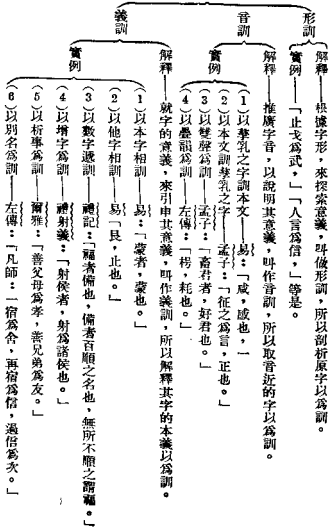 形訓
解釋——根據字形,來探索意義,叫做形訓,所以剖析原字以爲訓。
實例——「止戈爲武,」「人言爲信,」等是。
音訓
解釋——推廣字音,以說明其意義,叫作音訓,所以取音近的字以爲訓。
實例
(1)以孳乳之字訓本文——易:「咸,感也,」
(2)以本文訓孳乳之字——孟子:「征之爲言,正也。」
(3)以雙聲爲訓——孟子:「畜君者,好君也。」
(4)以疊韻爲訓——左傳:「楛,耗也。」
義訓
解釋——就字的意義,來引申其意義,叫作義訓,所以解釋其字的本義以爲訓。
實例
(1)以本字相訓——易:「蒙者,蒙也。」
(2)以他字相訓——易「艮,止也。」
(3)以數字遞訓——禮記:「福者備也,備者百順之名也,無所不順之謂備。」
(4)以增字爲訓——禮射義:「射侯者,射爲諸侯也。」
(5)以析事爲訓——爾雅:「善父母爲孝,善兄弟爲友。」
(6)以別名爲訓——左傳:「凡師:一宿爲舍,再宿爲信,過信爲次。」